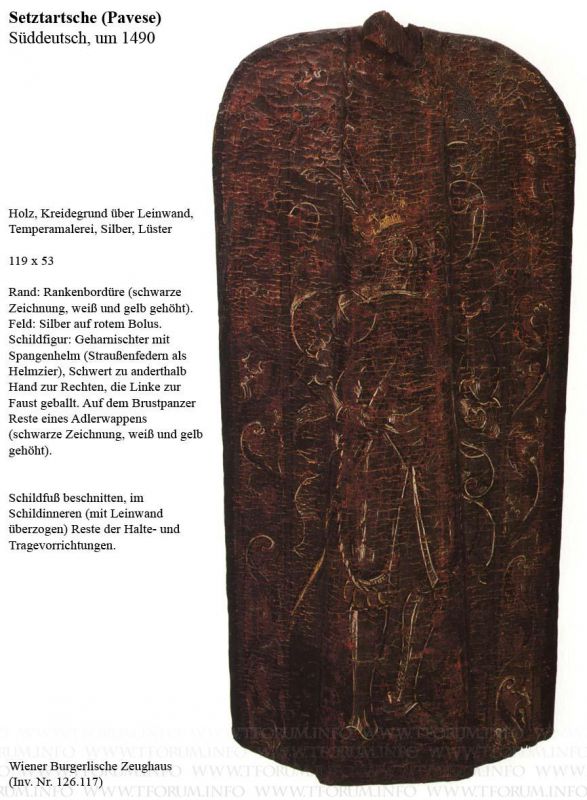 Setztartsche (Pavese)
Süddeutsch, um 1490
Holz, Kreidegrund über Leinwand,
Temperamalerei, Silber, Lüster
119 x 53
Rand: Rankenbordüre (schwarze
Zeichnung, weiß und gelb gehöht).
Feld: Silber auf rotem Bolus.
Schildfigur: Geharnischter mit
Spangenhelm (Straußenfedern als
Helmzier), Schwert zu anderthalb
Hand zur Rechten, die Linke zur
Faust geballt. Auf dem Brustpanzer
Reste eines Adlerwappens
(schwarze Zeichnung, weiß und gelb
gehöht).
Schildfuß beschnitten, im
Schildinneren (mit Leinwand
überzogen) Reste der Halte- und
Tragevorrichtungen.
Wiener Burgerlische Zeughaus
(Inv. Nr. 126.117)
WWW.TFORUM.INFO